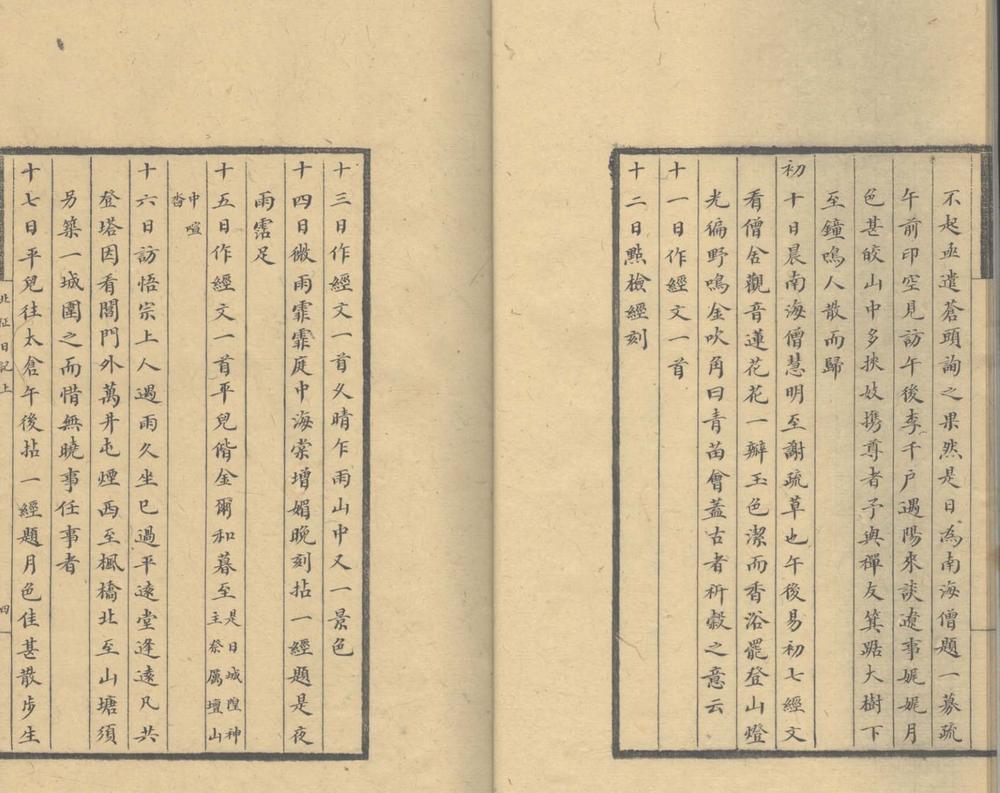 不起亟遣蒼頭詢之果然是日為南海僧題一募疏
午前印空見訪午後李千戶遇陽來談遼事娓娓月
色甚皎山中多挾妓携尊者予與禪友箕踞大樹下
至鐘鳴人散而歸
初十日晨南海僧慧明至謝疏草也午後易初七經文
看僧舍觀音蓮花花一瓣玉色潔而香浴罷登山燈
光徧野鳴金吹角曰青苗會蓋古者祈穀之意云
十一日作經文一首
十二日點檢經刻
十三日作經文一首乆晴乍雨山中又一景色
十四日微雨霏霏庭中海棠增媚晚刻拈一經題是夜
雨霑足
十五日作經文一首平兒偕金爾和暮至是日城隍神
主祭厲壇山
中喧
沓
十六日訪悟宗上人遇雨久坐已過平逺堂逢逺凡共
登塔因看閶門外萬井屯煙西至楓橋北至山塘須
另築一城圍之而惜無曉事任事者
十七日平兒往太倉午後拈一經題月色佳甚散步生
北征日記上
四